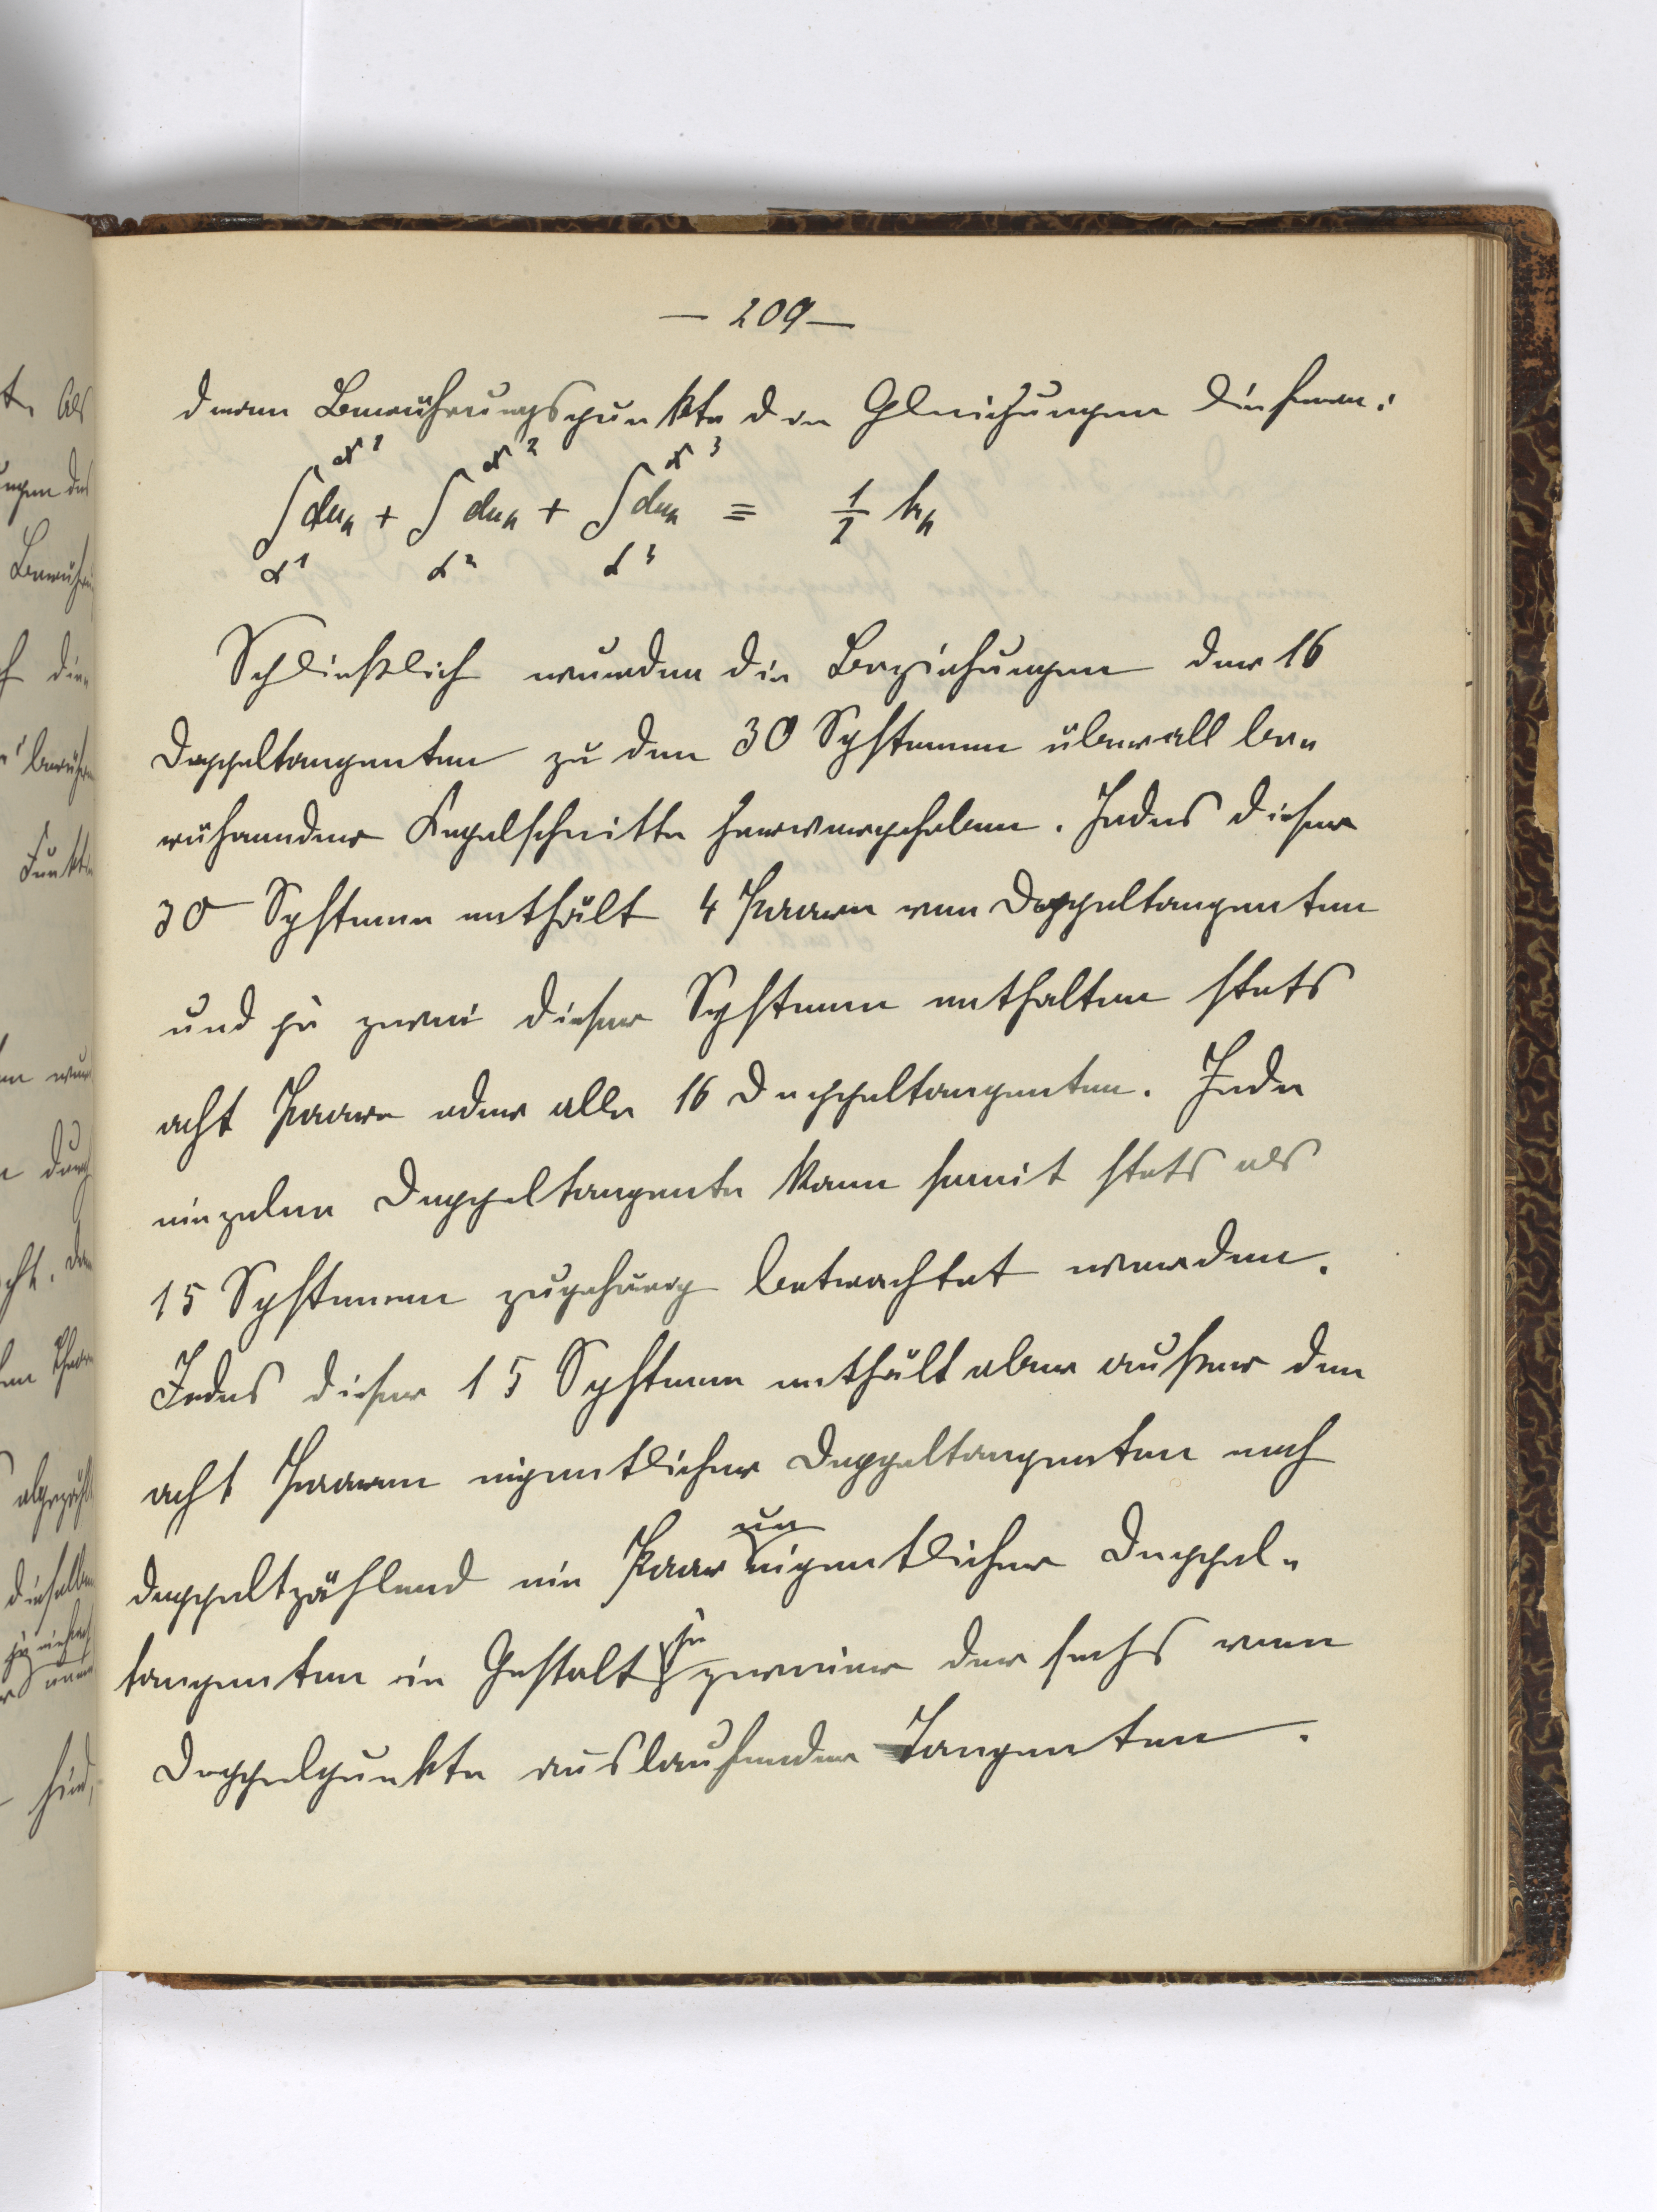 — 209 —
deren Berührungspunkte den Gleichungen
∫du + ∫du + ∫du ≡ 1/2 h
Schließlich wurden die Beziehungen der 16
Doppeltangenten zu den 30 Systemen überall be„
rührender Kegelschnitte hervorgehoben. Jedes dieser
30 Systeme enthält 4 Paare von Doppeltangenten
und je zwei dieser Systeme enthalten stets
acht Paare oder alle 16 Doppeltangenten. Jede
einzelne Doppeltangente kann somit stets als
15 Systemen zugehörig betrachtet werden.
Jedes dieser 15 Systeme enthält aber außer den
acht Paaren eigentlicher Doppeltangenten noch
doppeltzählend ein Paar uneigentlicher Doppel„
tangenten in Gestalt je zweier der sechs vom
Doppelpunkte auslaufenden Tangenten.
t. Als
ungen des
Berühr
f die
berühr
Funkt
durch
cht. Da
abgezählt
dieselbe
sind,